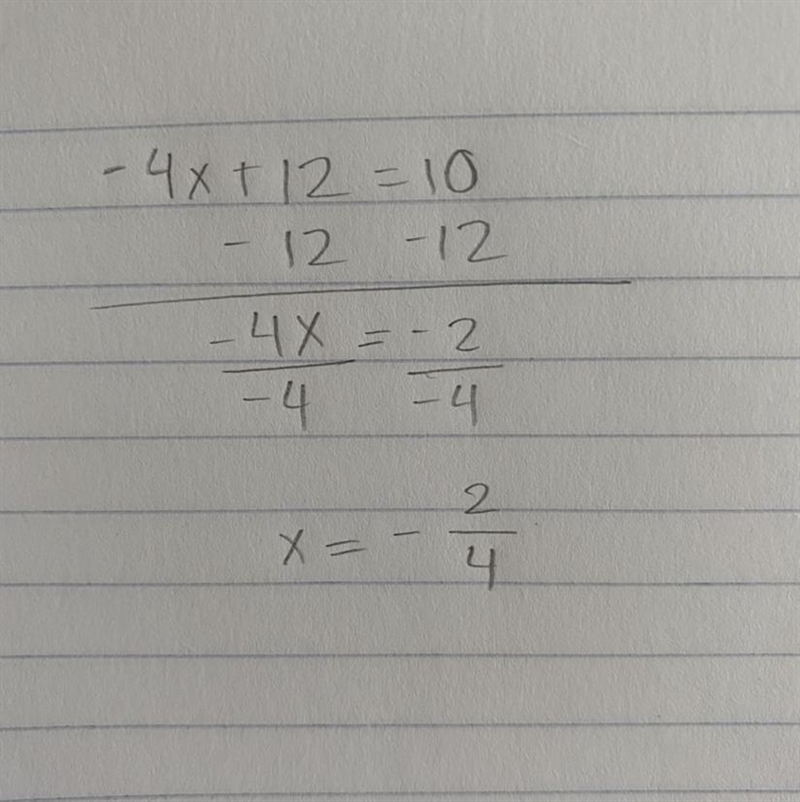 -4x+12=10
-12 -12
-4x = -2
-4 -4
x = - 2/4